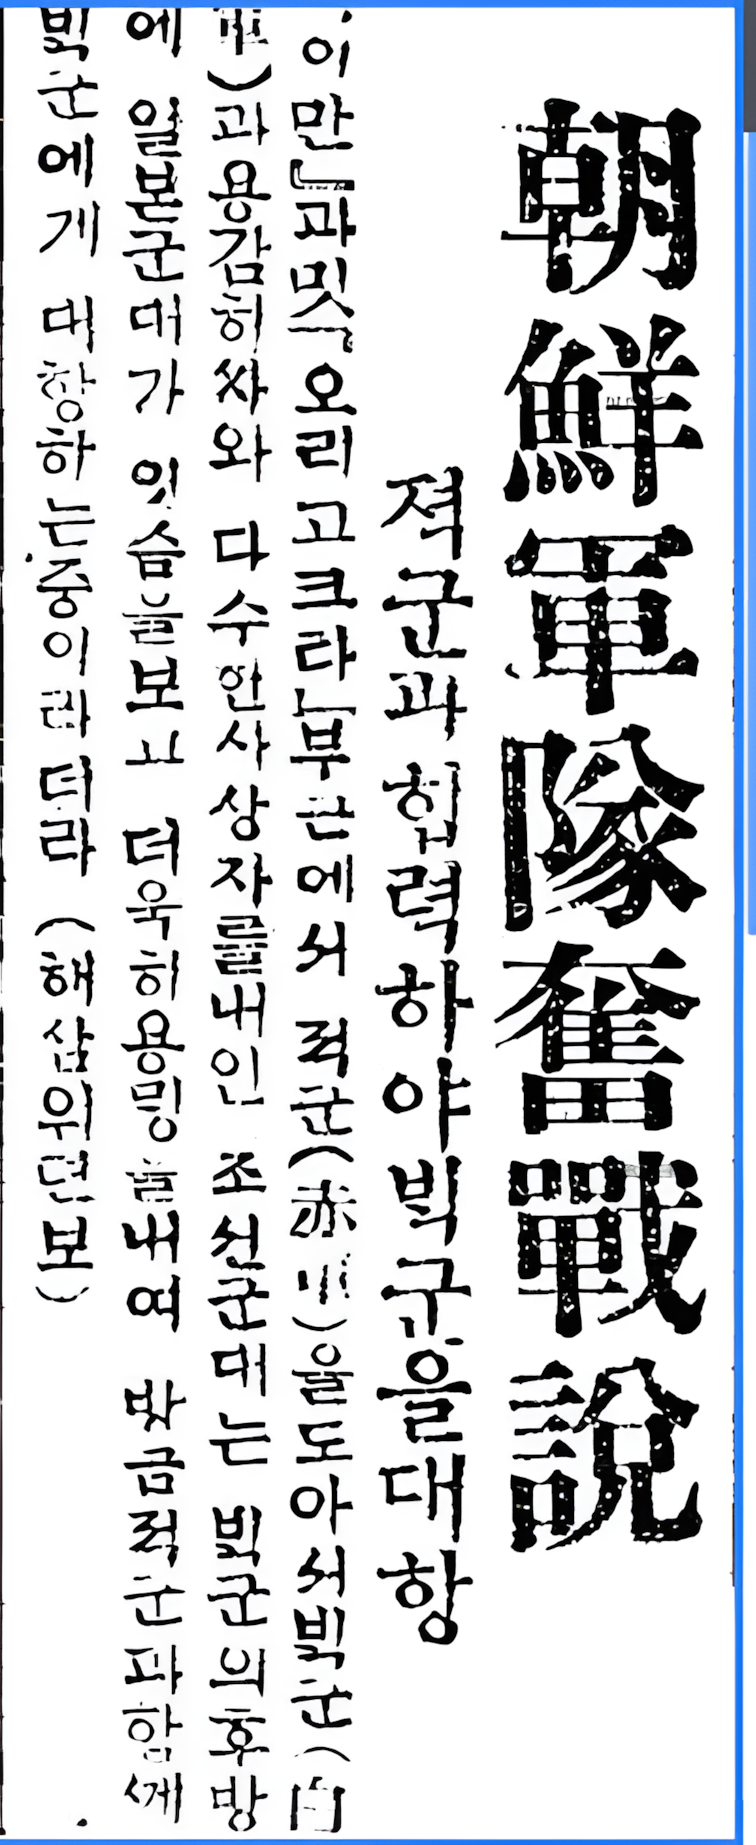 朝鮮軍隊奮戰說
젹군과 협력하야 빅군을 대항
이만」과 밋 오리고크라」부근에셔 젹군(赤軍)을도아셔빅군(白
軍)과용감히싸와 다수한사상자를내인 조선군대는 빅군의후방
에 일본군대가 잇슴을보고 더욱히용밍을내여 방금젹군과함께
빅군에게 대항하는중이라더라 (해삼위뎐보)